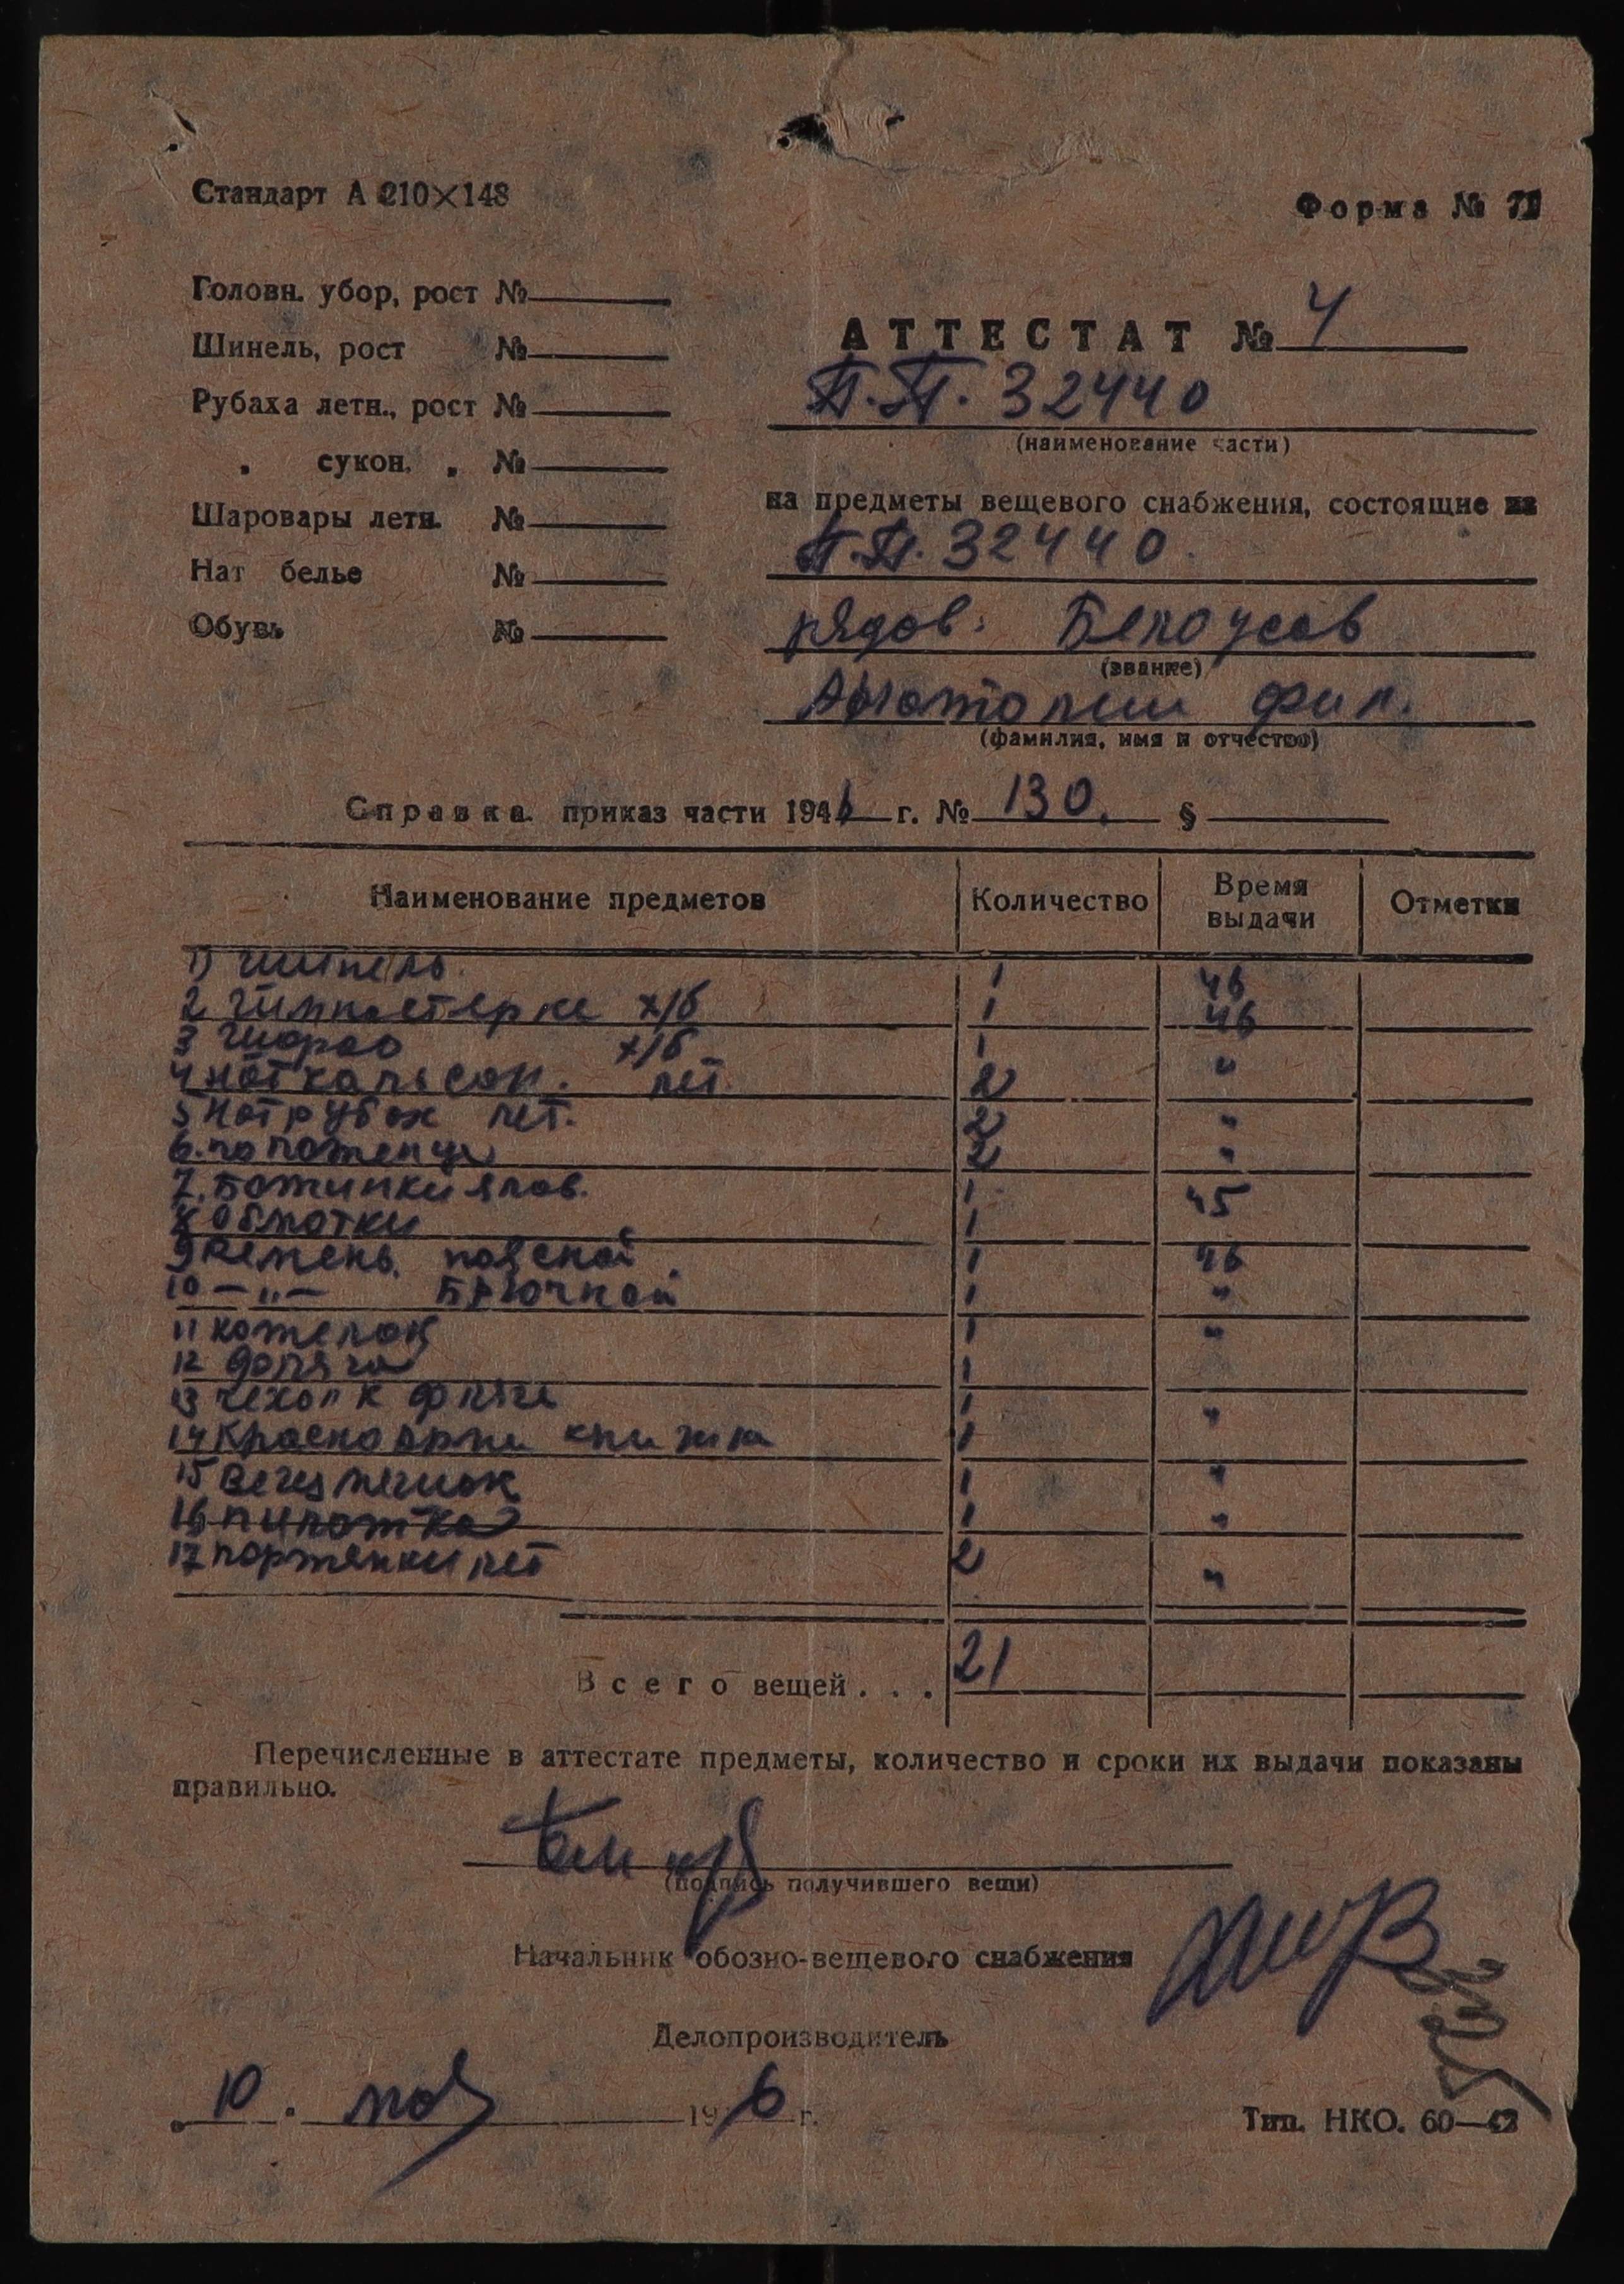 Стандарт А 210×148
Форма №
Головн. убор, рост №
Шинель, рост №
Рубаха летн., рост №
„ сукон. „ №
Шаровары летн. №
Нат белье №
Обувь №
АТТЕСТАТ № 4
П.П. 32440
(наименование части)
на предметы вещевого снабжения, состоящие из
П.П. 32440.
рядов. Белоусов
(звание)
Анатолии Фил.
(фамилия, имя и отчество)
Справка. приказ части 1946 г. № 130. §
Наименование предметов Количество Время выдачи Отметки
1) шинель. 1 46
2 Гимностерка х/б 1 46
3 шаров х/б 1 "
4 нат кальсон. лет. 2
5 нат рубах лет. 2 "
6. полотенцы 2 "
7. Ботинки яров. 1 45
8 обмотки 1
9 Ремень. поясной. 1 46
10 — „ — Брючной 1 "
11 котелок 1 "
12 фляга 1
13 чехол к фляге 1 "
14 Красноарми книжка 1
15 Вещмешок 1 "
16 пилотка 1 "
17 портянки лет 2 "
Всего вещей . . . 21
Перечисленные в аттестате предметы, количество и сроки их выдачи показаны
правильно.
(подпись получившего вещи)
Начальник обозно-вещевого снабжения
Делопроизводитель
„ 10 . мая 1946 г.
Тип. НКО. 60—42